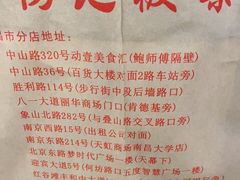 昌市分店地址:
中山路320号动壹美食汇(鲍师傅隔壁)
中山路36号(百货大楼对面2路车站旁)
胜利路114号(步行街中段后墙路口)
八一大道丽华商场门口(肯德基旁)
象山北路282号(与叠山路交叉路口旁)
南京西路15号(出租公司对面)
南京东路214号(天虹商场南昌大学店)
北京东路梦时代广场一楼(天幕下)
迎宾大道5号(何坊路口五度智慧广场一楼)